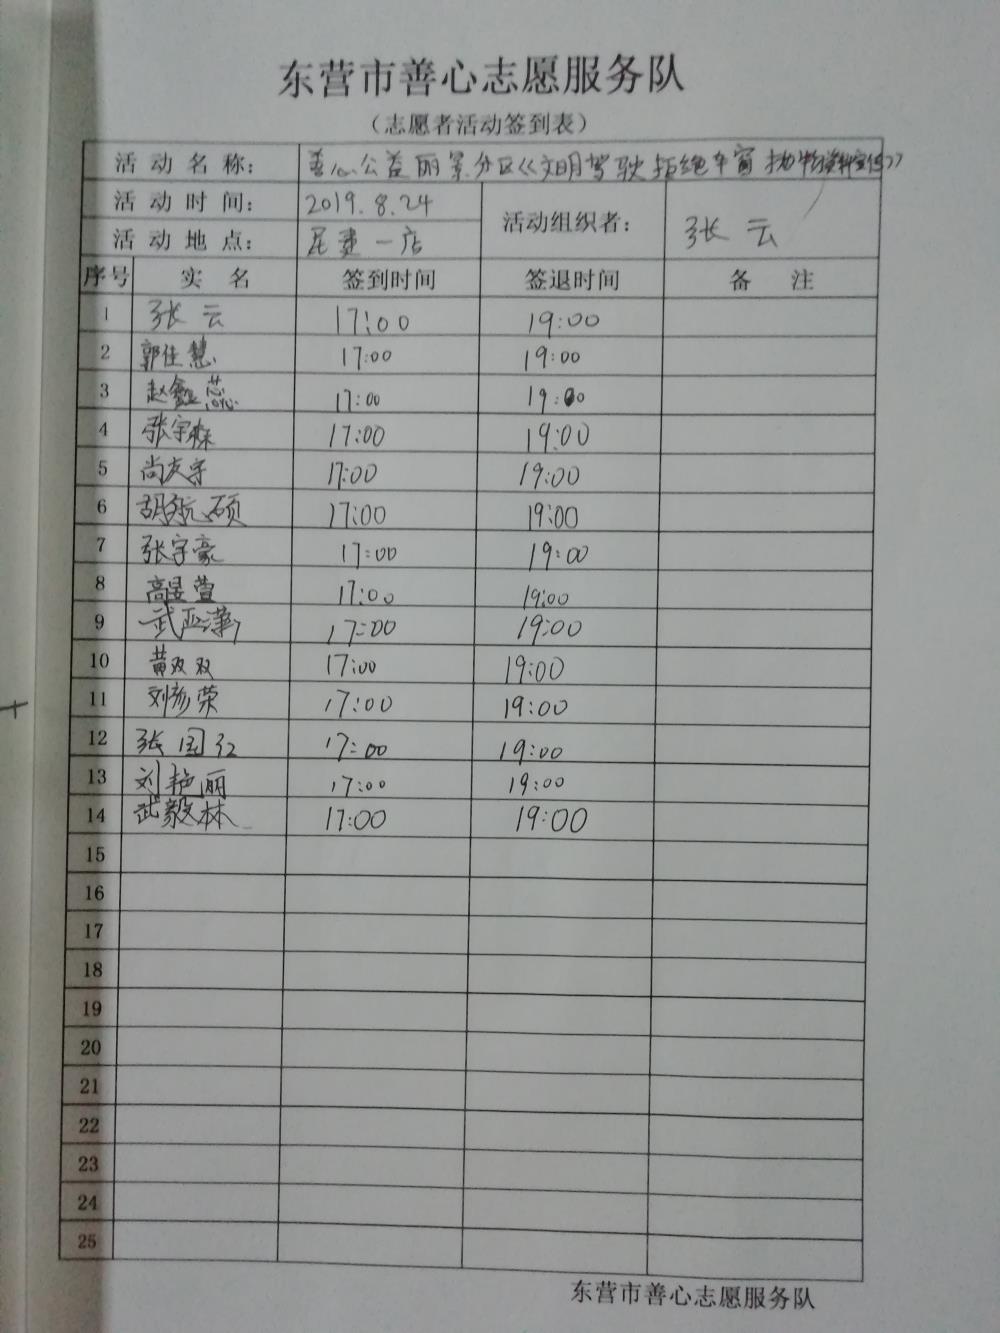 东营市善心志愿服务队
（志愿者活动签到表）
活动名称： 善心公益丽景分区《文明驾驶拒绝车窗抛物资料宣传》
活动时间： 2019.8.24 活动组织者： 张云
活动地点： 一店
序号 实名 签到时间 签退时间 备注
1 张云 17:00 19:00
2 郭佳慧 17:00 19:00
3 赵鑫蕊 17:00 19:00
4 张宇 17:00 19:00
5 尚友宇 17:00 19:00
6 胡航硕 17:00 19:00
7 张宇豪 17:00 19:00
8 高昱萱 17:00 19:00
9 武亚 17:00 19:00
10 黄双双 17:00 19:00
11 刘彦荣 17:00 19:00
12 张国红 17:00 19:00
13 刘艳丽 17:00 19:00
14 武毅林 17:00 19:00
15
16
17
18
19
20
21
22
23
24
25
东营市善心志愿服务队